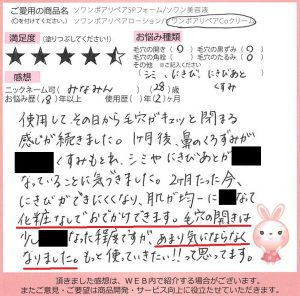 ご使用の商品 ソワンポアリペアSPフォーム/ソワン美容液
(○を付けてください。) ソワンポアリペアローション/ソワンポアリペアCoクリーム
満足度 (塗りつぶしてください!) お悩み種類
毛穴の開き( 0 ) 毛穴の黒ずみ( 0 )
毛穴の角栓( ) 毛穴のたるみ( 0 )
その他 ※ご記入ください
(シミ、にきび、にきびあと
くすみ )
感想
ニックネーム可( みなみん ) ( 28 )歳
お悩み歴( 8 )年以上 使用歴( )年( 2 )ヶ月
使用して、その日から毛穴がキュッと閉まる
感じが続きました。1ヶ月後、鼻のくろずみが
くすみもとれ、シミやにきびあとが
なっていることに気づきました。2ヶ月たった今、
にきびができにくくなり、肌が均一に なて
化粧なしでおでかけできます。毛穴の開きは
少し なった程度ですが、あまり気にならなく
なりました。もっと使っていきたい!!って思ってます。
頂きました感想は、WEB内で紹介する場合がございます。
またご意見・ご要望は商品開発・サービス向上に役立たせていただきます。